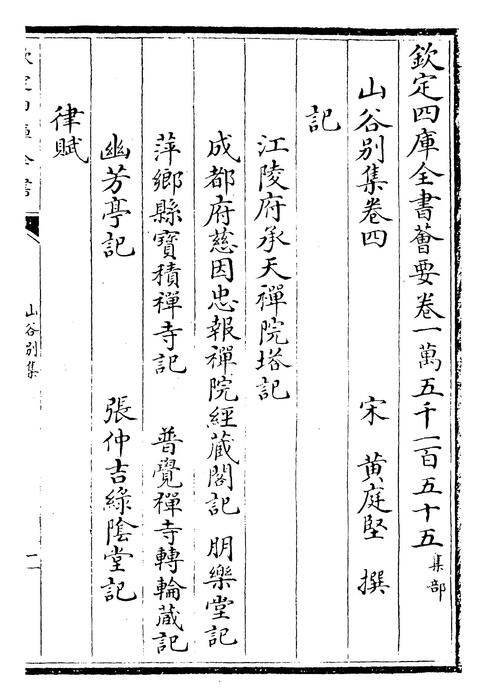 欽定四庫全書薈要卷一萬五千一百五十五 集部
山谷別集卷四 宋 黄庭堅 撰
記
江陵府承天禪院塔記
成都府慈因忠報禪院經蔵閣記 朋樂堂記
萍鄉縣寶積禪寺記 普覺禪寺轉輪蔵記
幽芳亭記 張仲吉綠陰堂記
律賦
欽定四庫全書
山谷別集
一